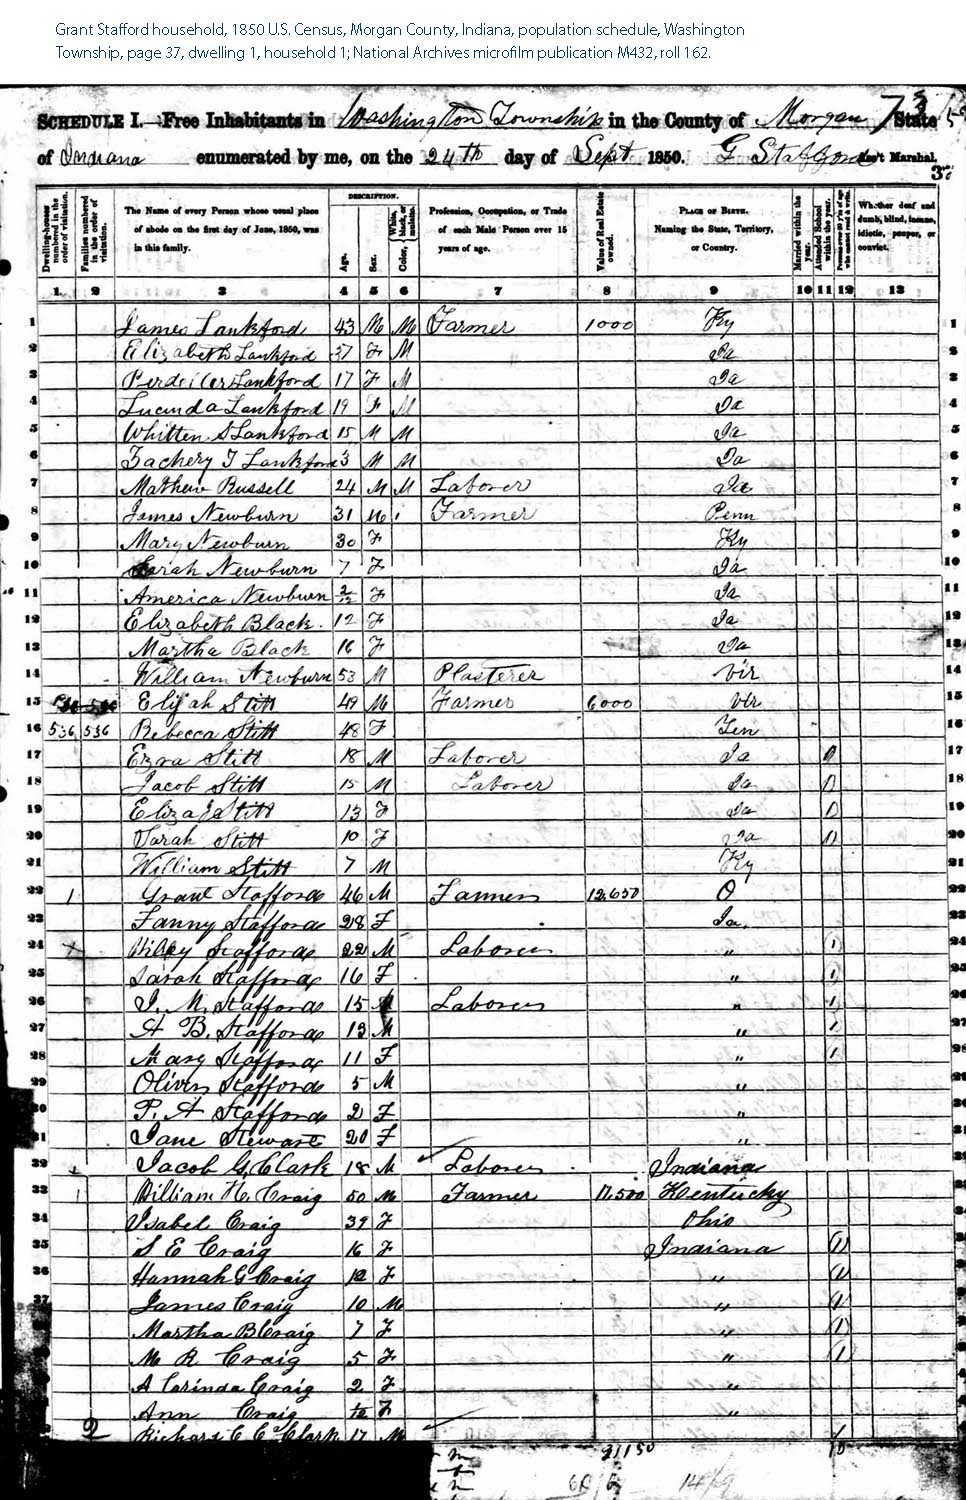 Grant Stafford household, 1850 U.S. Census, Morgan County, Indiana, population schedule, Washington
Township, page 37, dwelling 1, household 1; National Archives microfilm publication M432, roll 162.
SCHEDULE I.—Free Inhabitants in Washington Township in the County of Morgan State
of Indiana enumerated by me, on the 24th day of Sept 1850. G Stafford Ass't Marshal.
37
Dwelling-houses numbered in the order of visitation.
Families numbered in the order of visitation.
The Name of every Person whose usual place of abode on the first day of June, 1850, was in this family.
DESCRIPTION.
Age.
Sex.
Color, White, black, or mulatto.
Profession, Occupation, or Trade of each Male Person over 15 years of age.
Value of Real Estate owned.
PLACE OF BIRTH. Naming the State, Territory, or Country.
Married within the year.
Attended School within the year.
Persons over 20 y'rs of age who cannot read & write.
Whether deaf and dumb, blind, insane, idiotic, pauper, or convict.
1 2 3 4 5 6 7 8 9 10 11 12 13
1 James Lankford 43 M M Farmer 1000 Ky 1
2 Elizabeth Lankford 37 F M 2
3 Lankford 17 F M Ia 3
4 Lucinda Lankford 19 F M 4
5 Whitten S Lankford 15 M M Ia 5
6 Zachery T Lankford 3 M M 6
7 Mathew Russell 24 M M Laborer 7
8 James Newburn 31 M Farmer Penn 8
9 Mary Newburn 30 F Ky 9
10 Sarah Newburn 7 F Ia 10
11 America Newburn 2/12 F Ia 11
12 Elizabeth Black 12 F Ia 12
13 Martha Black 16 F Ia 13
14 William Newburn 53 M Plasterer Vir 14
15 Elijah Stitt 49 M Farmer 6000 Vir 15
16 536 536 Rebecca Stitt 48 F Ten 16
17 Ezra Stitt 18 M Laborer Ia 1 17
18 Jacob Stitt 15 M Laborer Ia 1 18
19 Eliza J Stitt 13 F Ia 1 19
20 Sarah Stitt 10 F Ia 1 20
21 William Stitt 7 M Ky 21
22 1 Grant Stafford 46 M Farmer 12,650 O 22
23 Fanny Stafford 28 F Ia. 23
24 Wiley Stafford 22 M Laborer " 1 24
25 Sarah Stafford 16 F " 1 25
26 J. M. Stafford 15 M Laborer " 1 26
27 A B. Stafford 13 M " 1 27
28 Mary Stafford 11 F " 1 28
29 Oliver Stafford 5 M "
30 P. A Stafford 2 F "
31 Jane Stewart 20 F "
32 Jacob G. Clark 18 M Laborer Indiana
33 1 William H. Craig 50 M Farmer Kentucky
34 Isabel Craig 39 F Ohio
35 S E Craig 16 F Indiana 1
36 Hannah G Craig 12 F " 1
37 James Craig 10 M " 1
Martha B Craig 7 F " 1
M R Craig 5 F " 1
A Carinda Craig 2 F "
Ann Craig F "
2 Richard Clark 17 M
21150